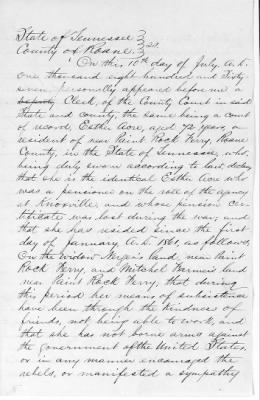 State of Tennessee }
County of Roane } SS.
On this 10th day of July A.D.
one thousand eight hundred and Sixty
seven Personally appeared before me a
deputy Clerk, of the County Court in said
State and county, the same being a court
of record, Esther Acre, aged 72 years, a
resident of near Paint Rock Ferry, Roane
County, in the State of Tennessee, who,
being duly sworn according to law deposes
that she is the identical Esther Acre who
was a pensioner on the roll of the agency
at Knoxville, and whose pension cer-
tificate was lost during the war; and
that she has resided since the first
day of January A.D. 1861, as follows,
On the widow land, near Paint
Rock Ferry, and Mitchel land
near Paint Rock Ferry; that during
this period her means of subsistence
have been through the kindness of
friends, not being able to work, and
that she has not borne arms against
the Government of the United States,
or in any manner encouraged the
rebels, or manifested a sympathy